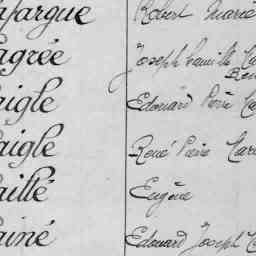 afargue Robert Marie
agrée Joseph Camille Ca
aigle Edouard Pierre Ca
aigle René Pierre Car
aillé Eugène
ainé Edouard Joseph C